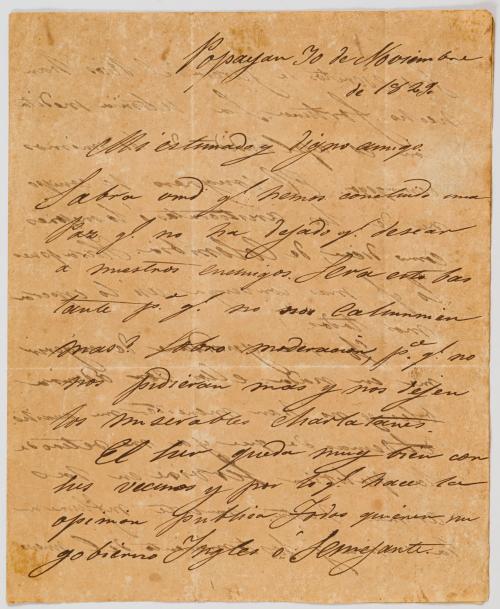 Popayan 30 de Noviembre
de 1829.
Mi estimado y digno amigo.
Sabra vmd q.e hemos concluido una
Paz q.e no ha dejado q.e desear
a nuestros enemigos. Sera esto bas
tante p.a q.e no nos calumnien
mas? Sobro moderacion, p.a q.e no
nos pidieran mas y nos dejen
los miserables charlatanes.
El Sur queda muy bien con
sus vecinos y por lo q.e hace la
opinion publica todos quieren un
gobierno Ingles ó Semejante.